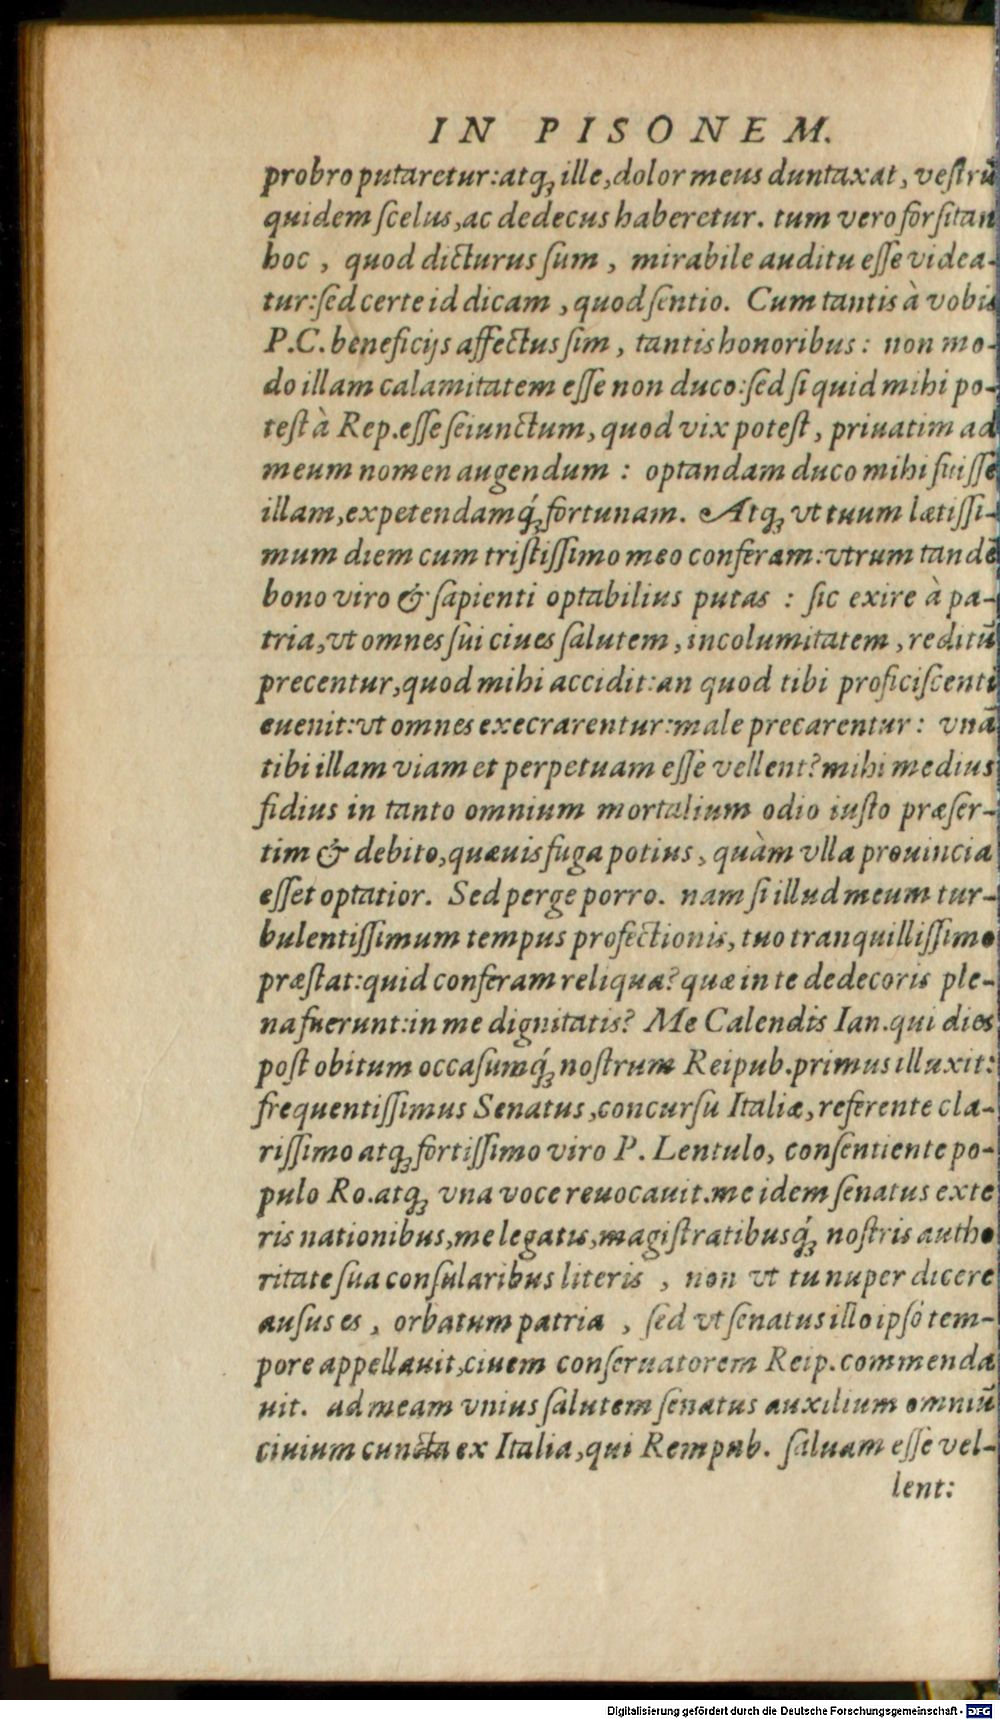 IN PISONEM.
probro putaretur: atq; ille, dolor meus duntaxat, vestrũ
quidem scelus, ac dedecus haberetur. tum vero forsitan
hoc, quod dicturus sum, mirabile auditu esse videa-
tur: sed certe id dicam, quod sentio. Cum tantis à vobis
P.C. beneficijs affectus sim, tantis honoribus: non mo-
do illam calamitatem esse non duco: sed si quid mihi po-
test à Rep. esse seiunctum, quod vix potest, priuatim ad
meum nomen augendum: optandam duco mihi fuisse
illam, expetendamq́; fortunam. Atq; vt tuum lætissi-
mum diem cum tristissimo meo conferam: vtrum tandẽ
bono viro & sapienti optabilius putas: sic exire à pa-
tria, vt omnes sui ciues salutem, incolumitatem, reditũ
precentur, quod mihi accidit: an quod tibi proficiscenti
euenit: vt omnes execrarentur: male precarentur: vnã
tibi illam viam et perpetuam esse vellent? mihi medius
fidius in tanto omnium mortalium odio iusto præser-
tim & debito, quæuis fuga potius, quàm vlla prouincia
esset optatior. Sed perge porro. nam si illud meum tur-
bulentissimum tempus profectionis, tuo tranquillissimo
præstat: quid conferam reliqua? quæ in te dedecoris ple-
na fuerunt: in me dignitatis? Me Calendis Ian. qui dies
post obitum occasumq́; nostrum Reipub. primus illuxit:
frequentissimus Senatus, concursu Italiæ, referente cla-
rissimo atq; fortissimo viro P. Lentulo, consentiente po-
pulo Ro. atq; vna voce reuocauit. me idem senatus exte
ris nationibus, me legatis, magistratibusq́; nostris autho
ritate sua consularibus literis, non vt tu nuper dicere
ausus es, orbatum patria, sed vt senatus illo ipso tem-
pore appellauit, ciuem conseruatorem Reip. commenda
uit. ad meam vnius salutem senatus auxilium omniũ
ciuium cuncta ex Italia, qui Rempub. saluam esse vel-
lent:
Digitalisierung gefördert durch die Deutsche Forschungsgemeinschaft - DFG